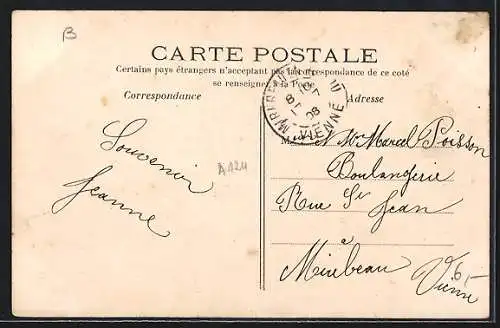 B
CARTE POSTALE
Certains pays étrangers n'acceptant pas la correspondance de ce coté
se renseigner à la Poste
Correspondance
Adresse
MIREBEAU
VIENNE
08
Souvenir
Jeanne
A124
et Mr Marcel Poisson
Boulangerie
Rue St Jean
a
Mirebeau
Vienne
6,-